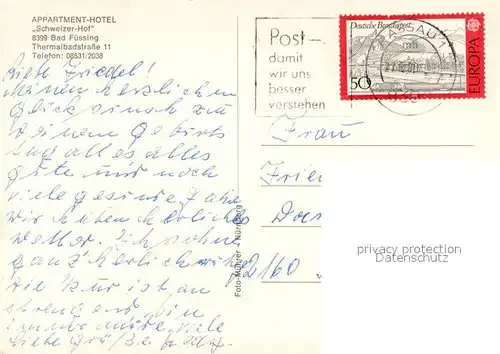 APPARTMENT-HOTEL
„Schweizer-Hof"
8399 Bad Füssing
Thermalbadstraße 11
Telefon: 08531/2038
Liebe Friedel!
Meinen herzlichen
Glückwunsch zu
deinem Geburts
tag alles alles
Gute und noch
viele gesunde Jahre
wir haben herrliches
wetter. Ich wohne
ganz herrlich
die Kur ist an
strengend, bin
immer müde, viele
liebe Grüße
Foto-Müller · Nürnberg
Post –
damit
wir uns
besser
verstehen
PASSAU 1
Deutsche Bundespost
50
EUROPA
Frau
2160
privacy protection
Datenschutz